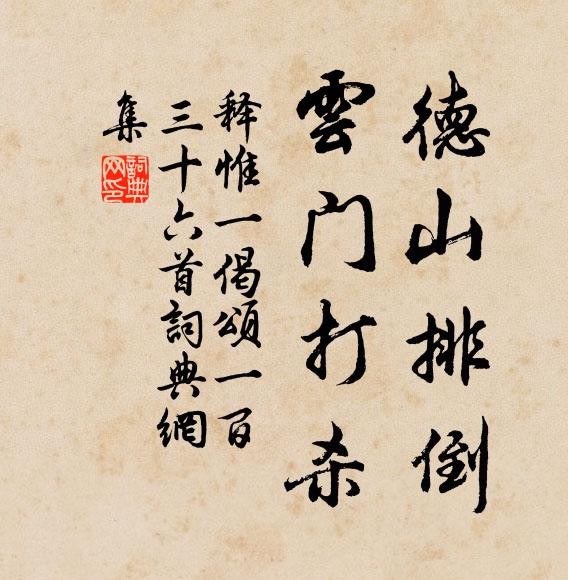 德山排倒
雲门打杀
释惟一偈頌一百
三十六首詞典網
集
詞典
网印